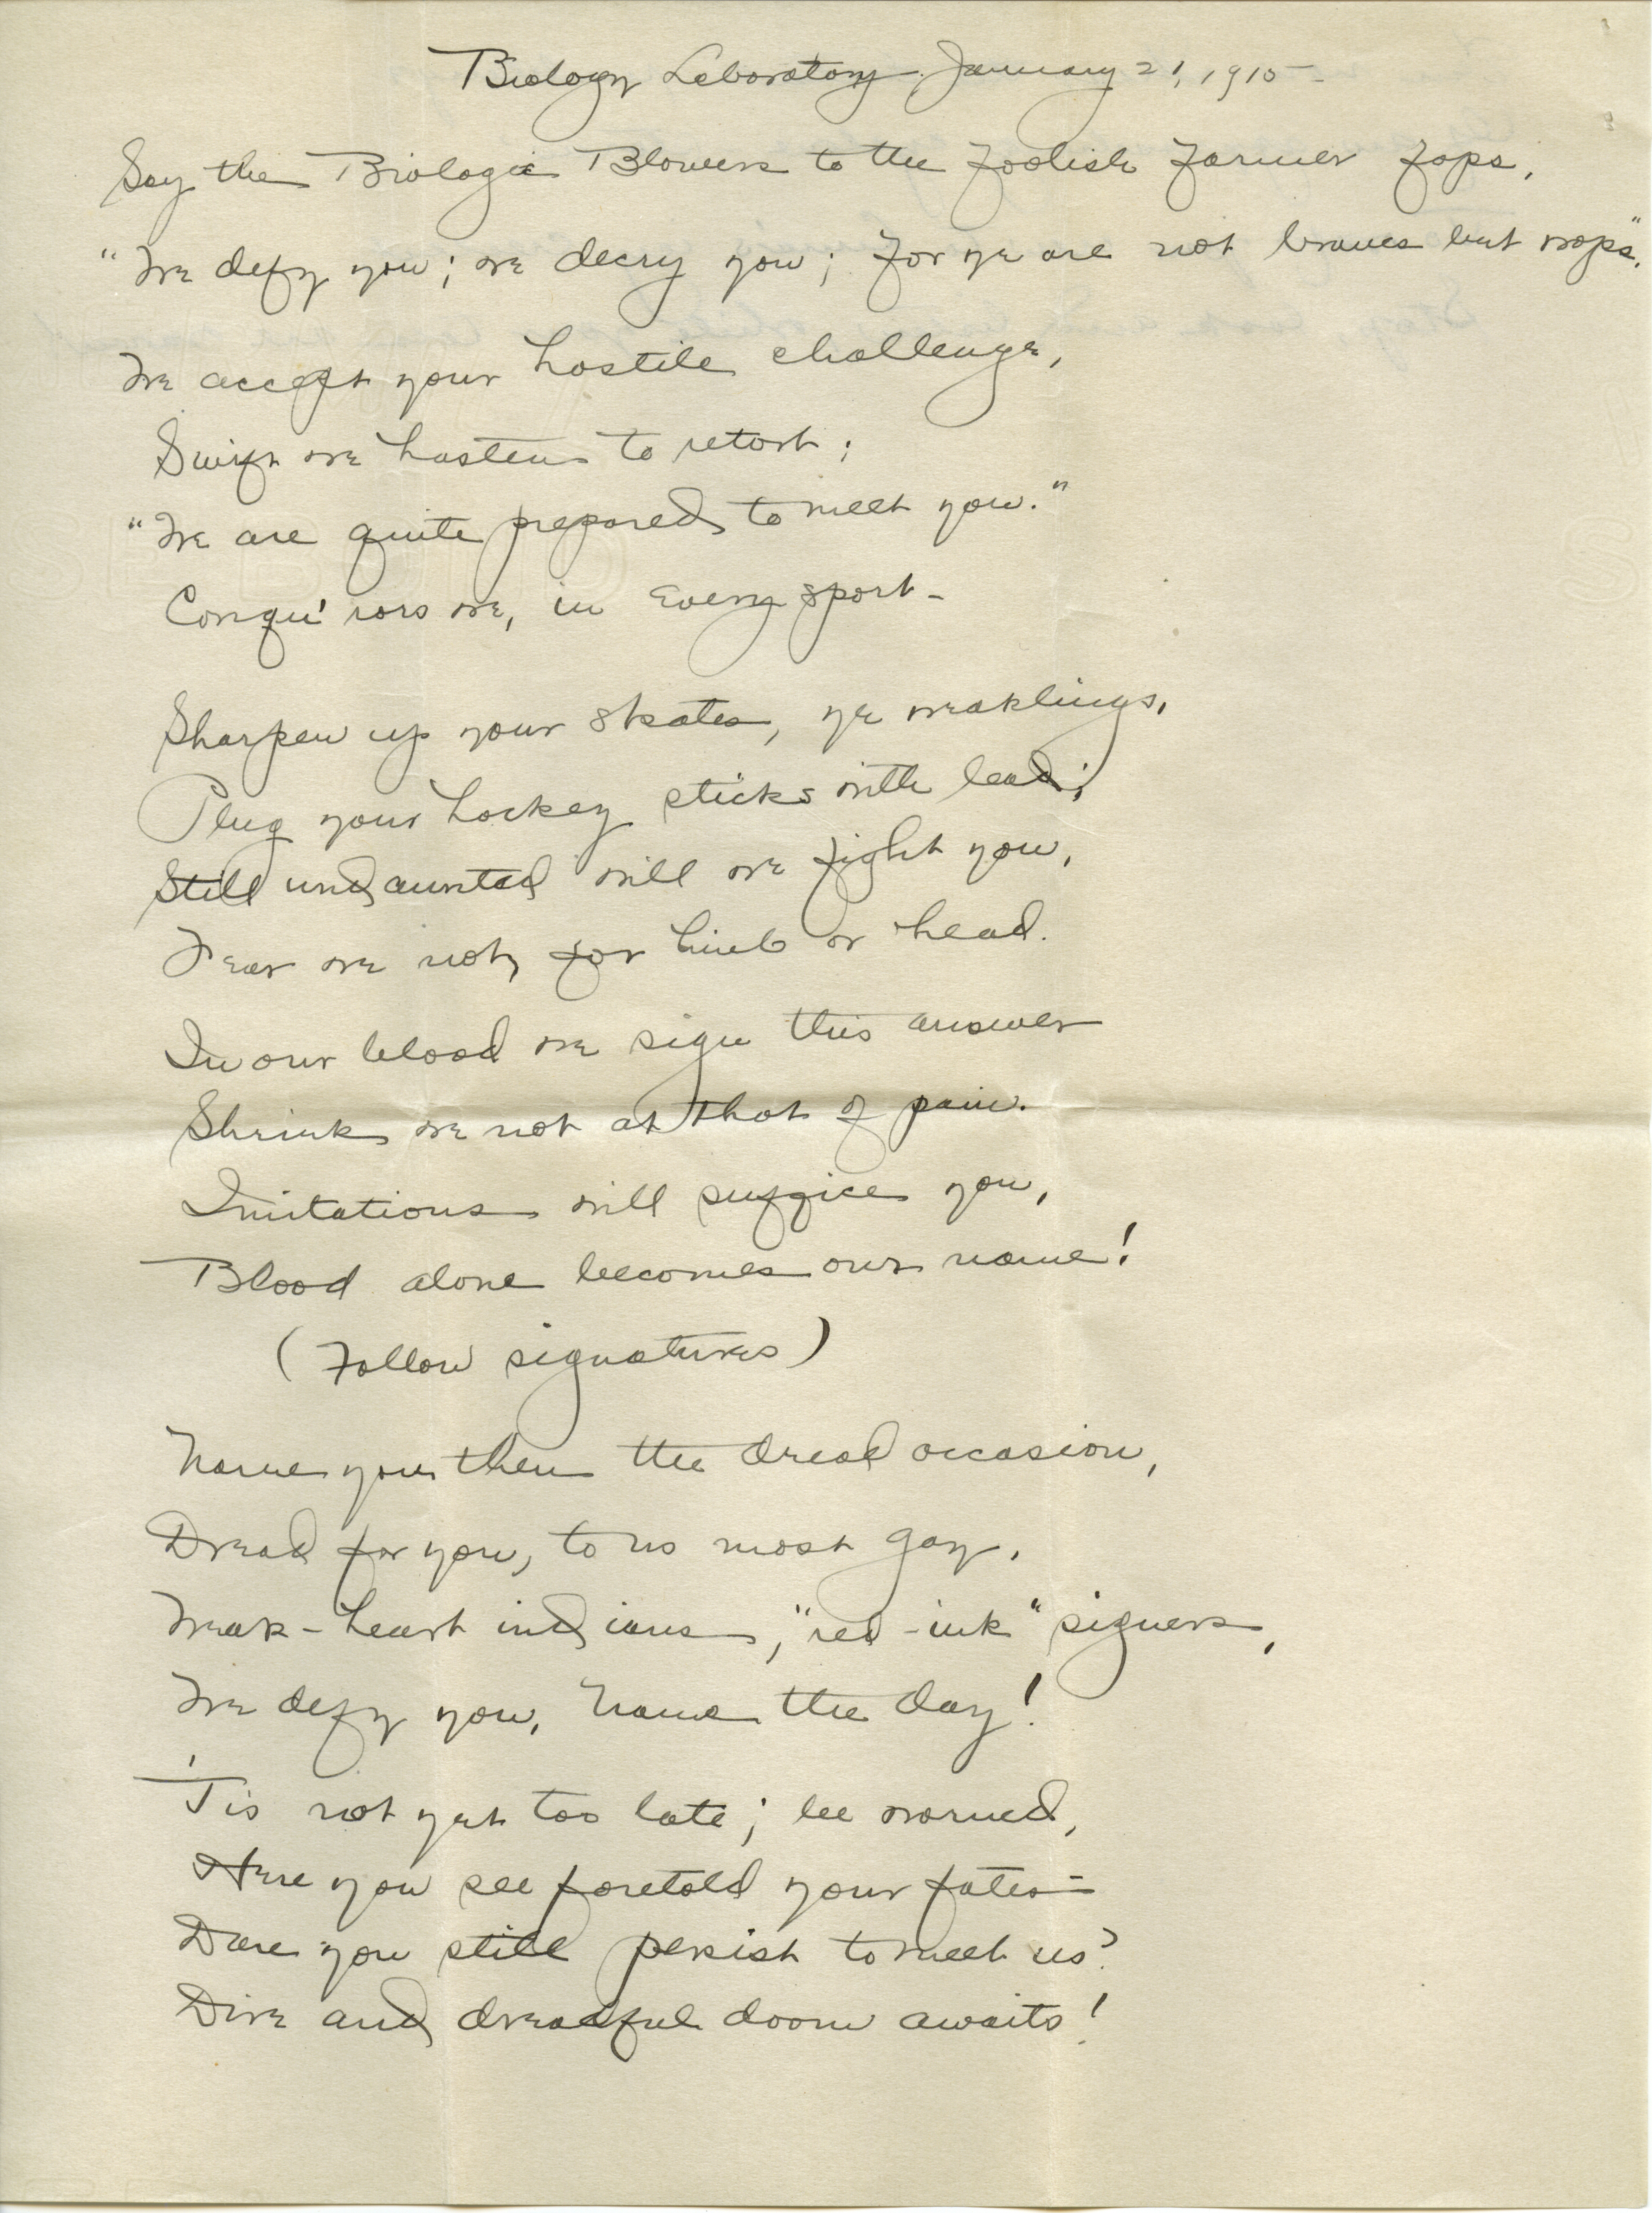 Biology Laboratory January 21, 1915
Say the Biologic Blowers to the foolish farmer fops,
"We defy you; we decry you; for ye are not braves but wops".
We accept your hostile challenge,
Swift we hasten to retort;
"We are quite prepared to meet you."
Conqu'rors we, in every sport-
Sharpen up your skates, ye weaklings,
Plug your hockey sticks with lead;
Still undaunted will we fight you,
Fear we not, for limb or head.
In our blood we sign this answer
Shrink we not at that of pain.
Imitations will suffice you,
Blood alone becomes our name!
(Follow signatures)
Name you then the dread occasion,
Dread for you, to us most gay,
Weak-heart indians, "red-ink" signers,
We defy you, Name the day!
'Tis not yet too late; be warned,
Here you see foretold your fates-
Dare you still persist to meet us?
Dire and dreadful doom awaits!